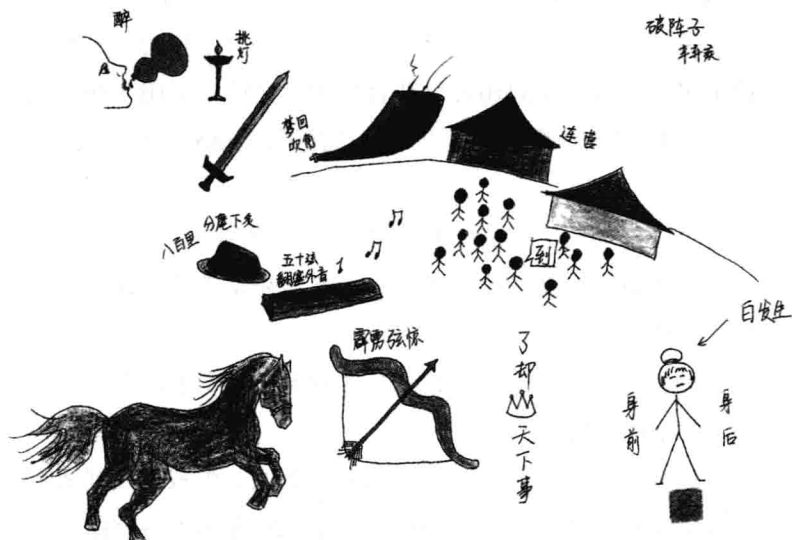 醉
挑
灯
破阵子
辛弃疾
梦回
吹角
连营
八百里
分麾下炙
五十弦
翻塞外音
到
霹雳弦惊
了却
天下事
白发生
身前
身后